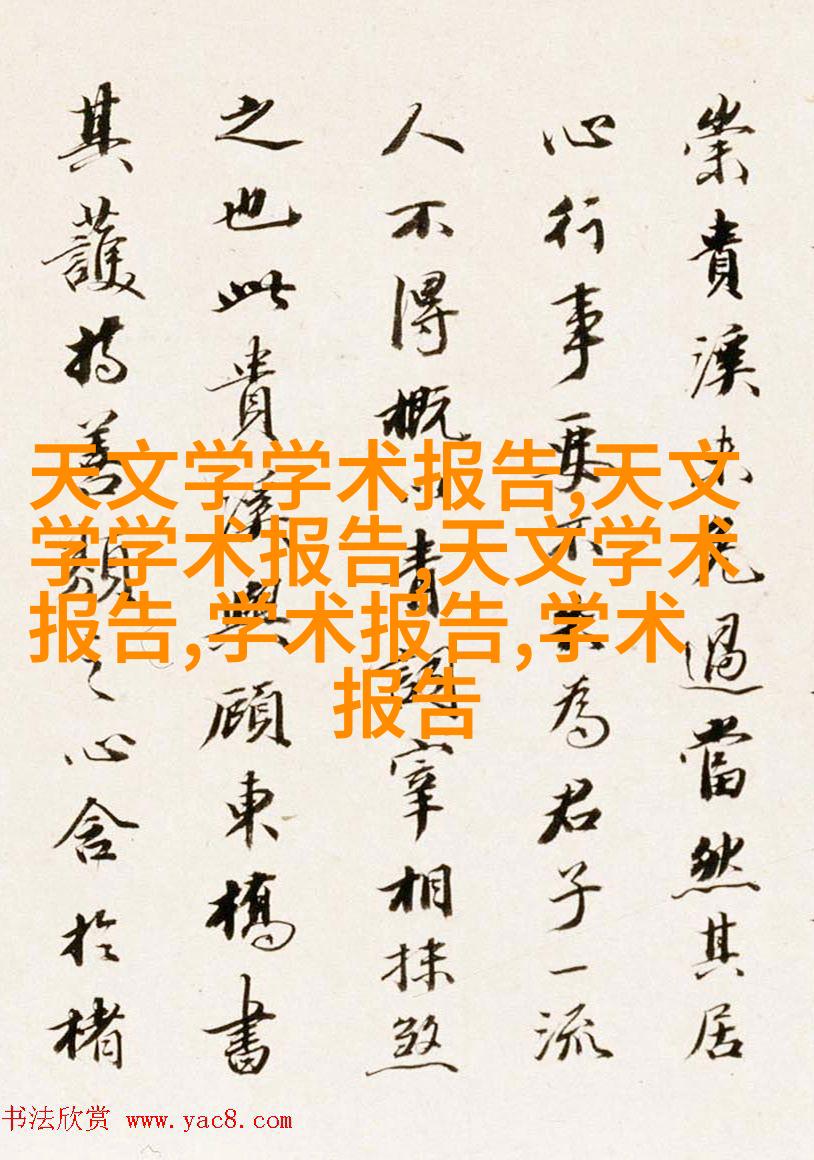 崇貴溪未免過當然其居
心行事要不失為君子一流
人不得概以青詞宰相抹煞
之也此貴溪與顧東橋書
其護持善類之心含於楮
天文学学术报告,天文
学学术报告,天文学术
报告,学术报告,学术
报告
书法欣赏 www.yac8.com